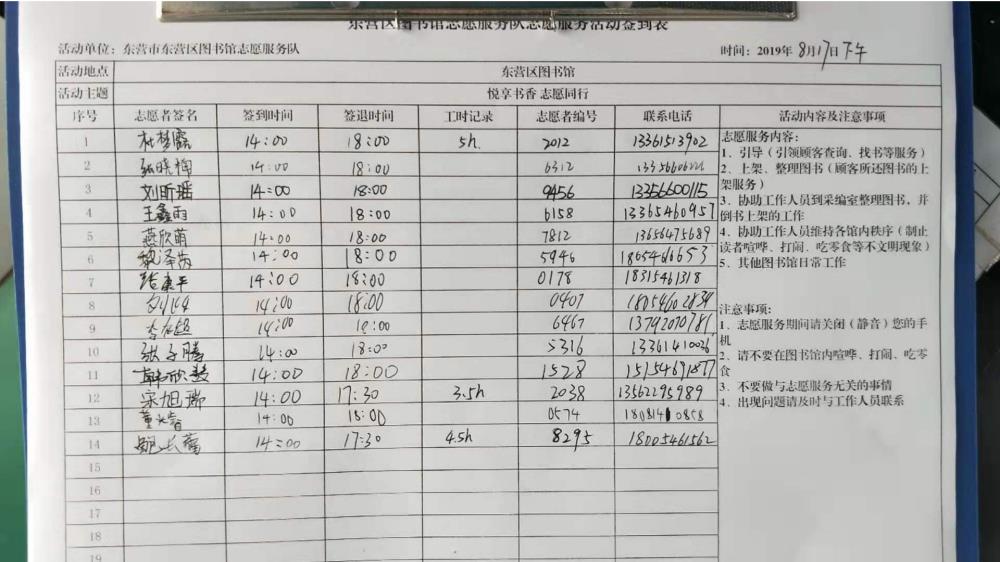 东营区图书馆志愿服务队志愿服务活动签到表
活动单位：东营市东营区图书馆志愿服务队 时间：2019年 8月17日下午
活动地点 东营区图书馆
活动主题 悦享书香 志愿同行
序号 志愿者签名 签到时间 签退时间 工时记录 志愿者编号 联系电话 活动内容及注意事项
1 杜梦露 14:00 18:00 5h. 2012 13361513902
2 张晓楠 14:00 18:00 6312
3 刘昕瑶 14:00 18:00 9456 13356600115
4 王鑫雨 14:00 18:00 6158 13365460957
5 燕欣萌 14:00 18:00 7812 13656475689
6 14:00 18:00 5946
7 张康平 14:00 18:00 0178 18315461318
8 14:00 18:00 0407 18054602834
9 14:00 18:00 6467 13792070781
10 张子腾 14:00 18:00 5316 13361410026
11 韩欣毅 14:00 18:00 1528 15154691877
12 宋旭瑞 14:00 17:30 3.5h 2038 13562295989
13 14:00 18:00 0574
14 14:00 17:30 4.5h 8295 18005461562
15
16
17
18
19
志愿服务内容：
1、引导（引领顾客查询、找书等服务）
2、上架、整理图书（顾客所还图书的上
架服务）
3、协助工作人员到采编室整理图书，并
倒书上架的工作
4、协助工作人员维持各馆内秩序（制止
读者喧哗、打闹、吃零食等不文明现象）
5、其他图书馆日常工作
注意事项：
1、志愿服务期间请关闭（静音）您的手
机
2、请不要在图书馆内喧哗、打闹、吃零
食
3、不要做与志愿服务无关的事情
4、出现问题请及时与工作人员联系